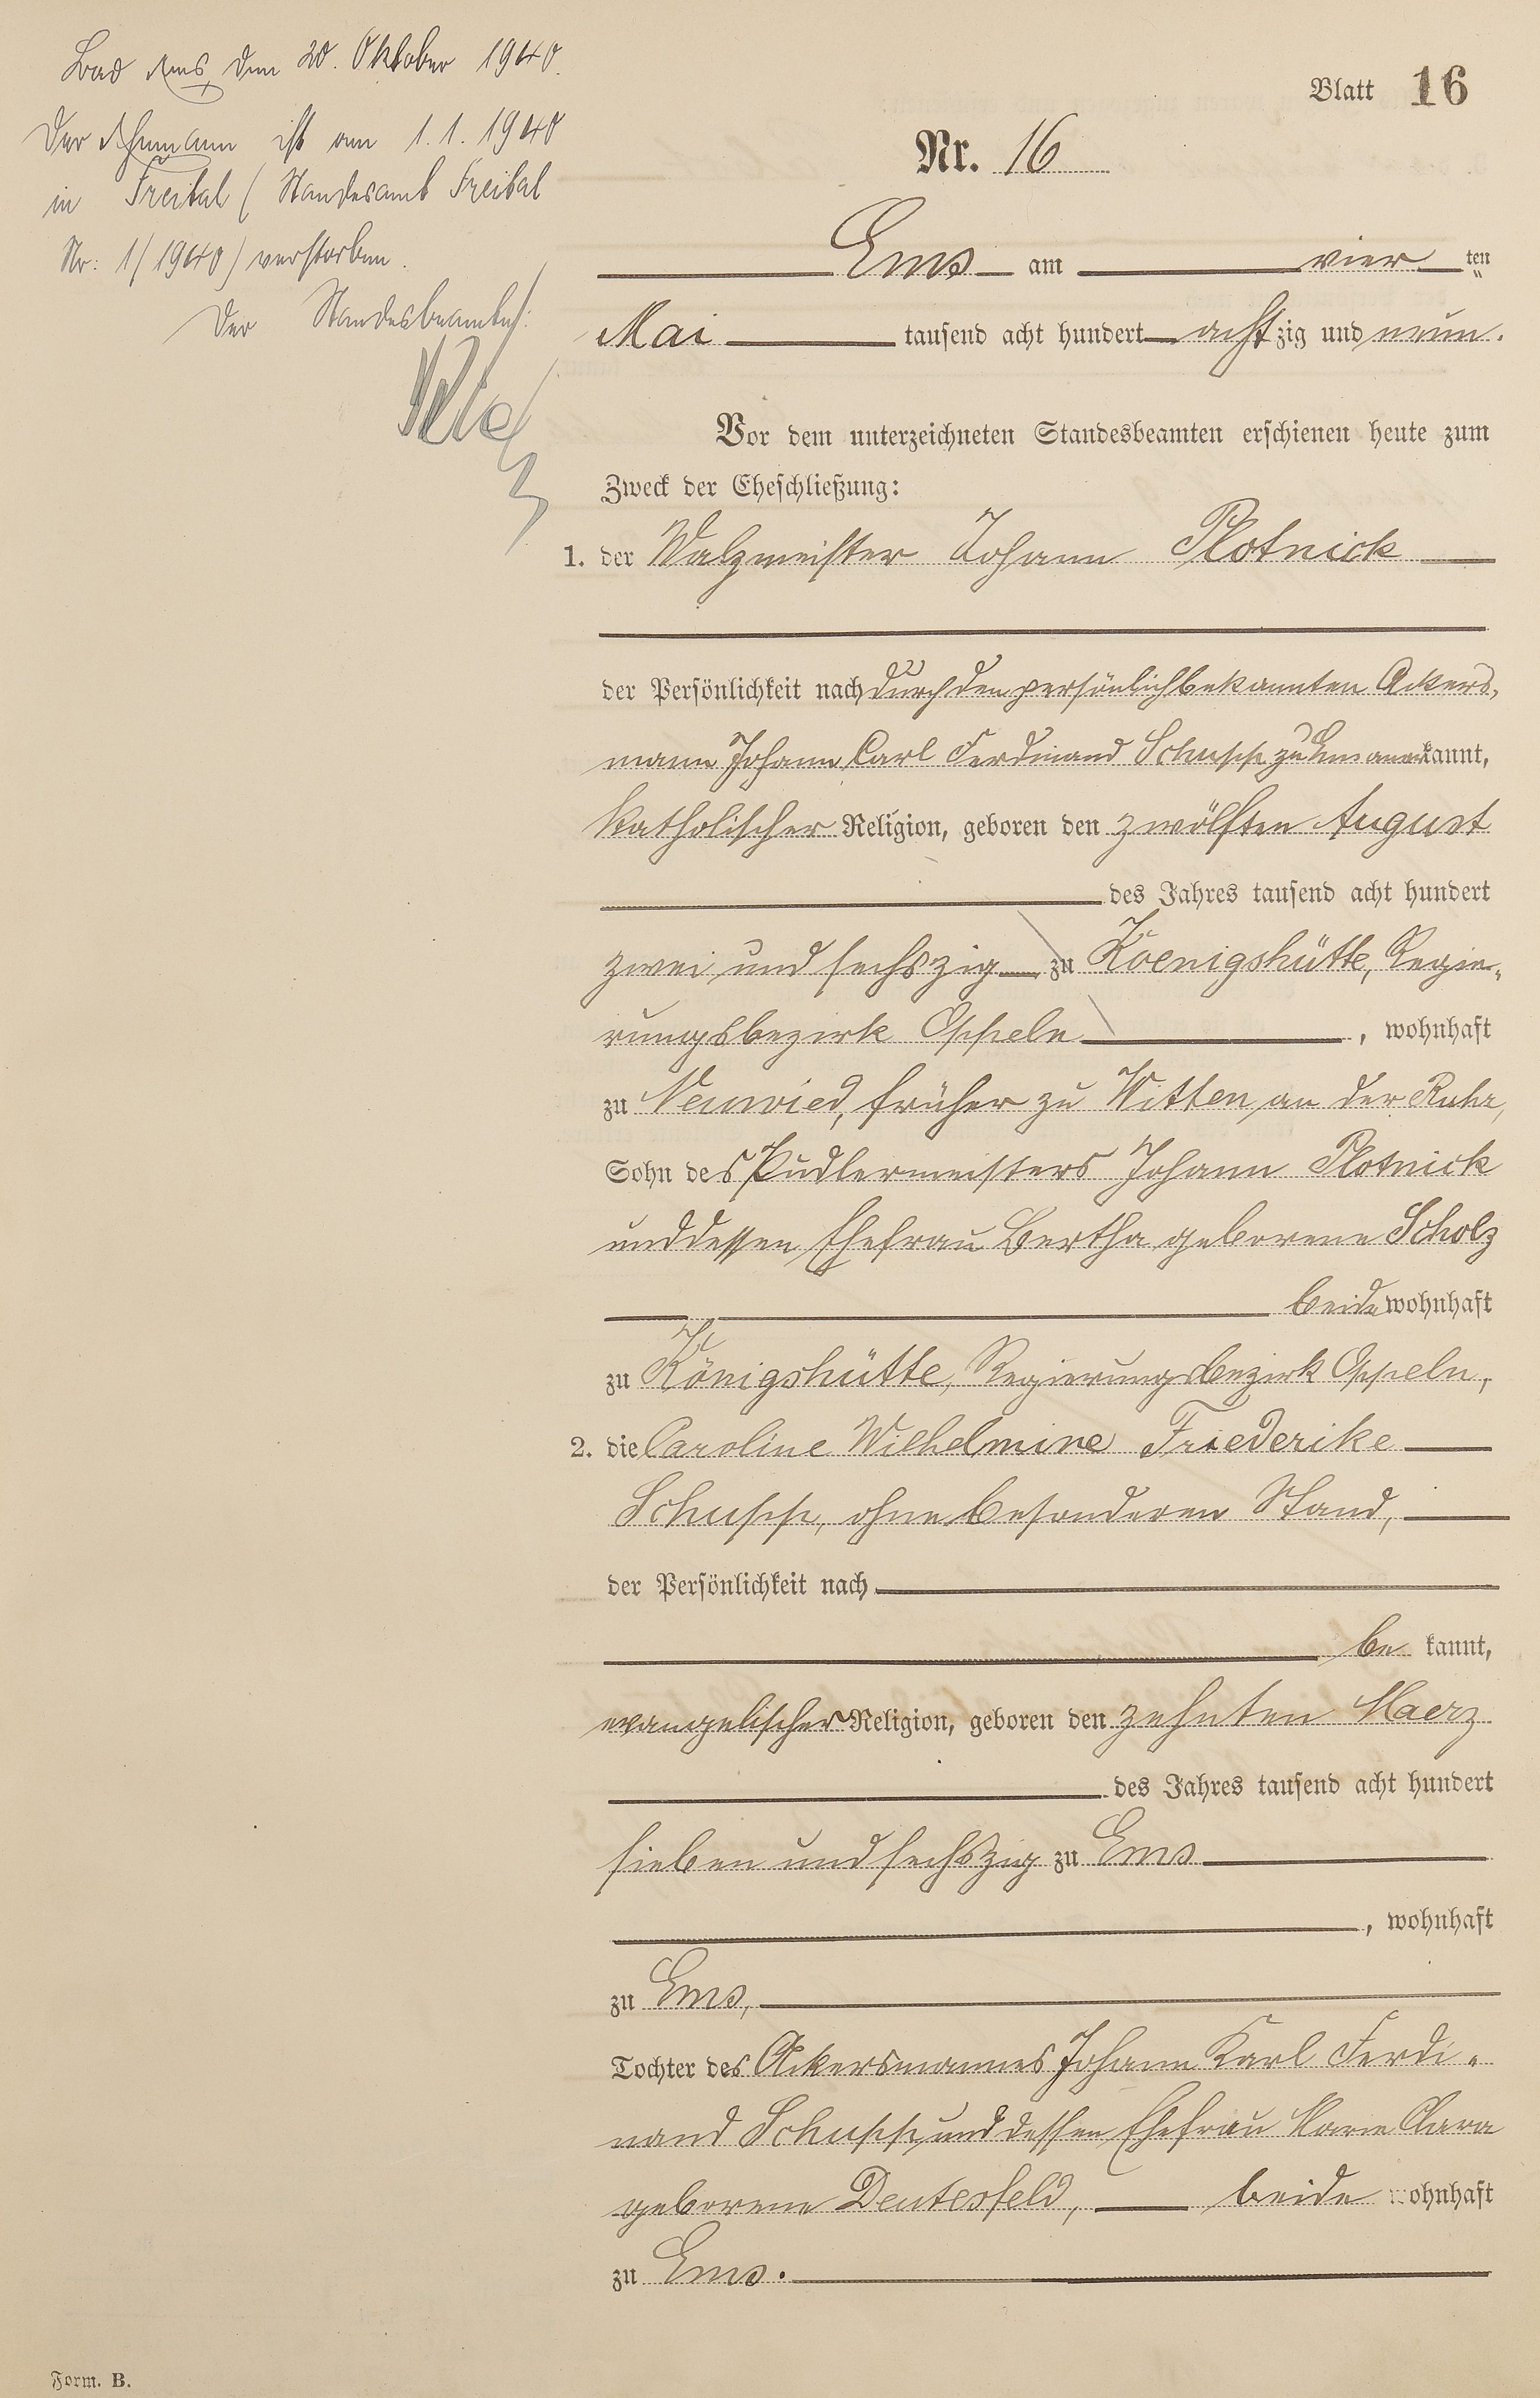 Bad Ems, den 20. Oktober 1940.
Der Ehemann ist am 1.1.1940
in Freital (Standesamt Freital
Nr: 1/1940) verstorben.
Der Standesbeamte:
Blatt 16
Nr. 16
Ems am vier ten
Mai tausend acht hundert achtzig und neun.
Vor dem unterzeichneten Standesbeamten erschienen heute zum
Zweck der Eheschließung:
1. der Walzmeister Johann Plotnick
der Persönlichkeit nach durch den persönlich bekannten Ackers-
mann Johann Carl Ferdinand Schupp zu Ems anerkannt,
katholischer Religion, geboren den zwölften August
des Jahres tausend acht hundert
zwei und sechszig zu Koenigshütte, Regie-
rungsbezirk Oppeln, wohnhaft
zu Neuwied, früher zu Witten an der Ruhr,
Sohn des Pudlermeisters Johann Plotnick
und dessen Ehefrau Bertha geborene Scholz
beide wohnhaft
zu Königshütte, Regierungsbezirk Oppeln,
2. die Caroline Wilhelmine Friederike
Schupp, ohne besonderen Stand,
der Persönlichkeit nach
be kannt,
evangelischer Religion, geboren den zehnten Maerz
des Jahres tausend acht hundert
sieben und sechszig zu Ems
, wohnhaft
zu Ems,
Tochter des Ackersmannes Johann Karl Ferdi-
nand Schupp und dessen Ehefrau Marie Clara
geborene Deutesfeld, beide wohnhaft
zu Ems.
Form. B.